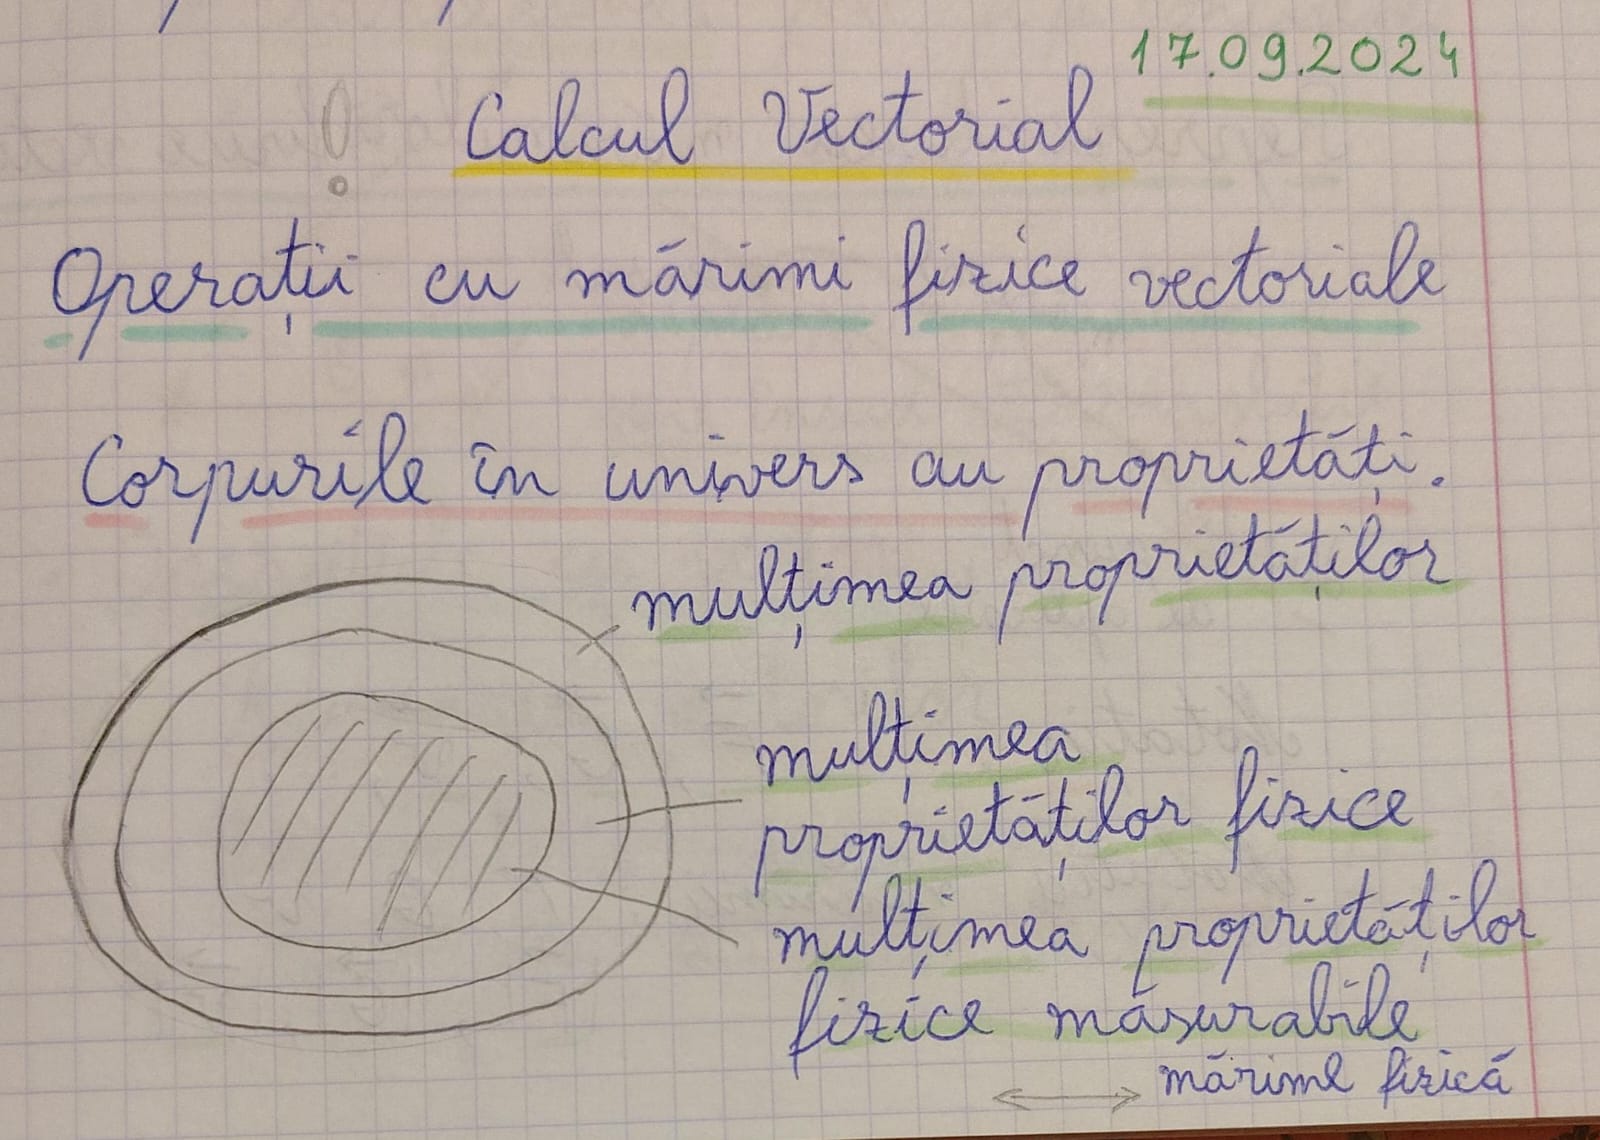 17.09.2024
! Calcul Vectorial
Operații cu mărimi fizice vectoriale
Corpurile în univers au proprietăți.
mulțimea proprietăților
mulțimea
proprietăților fizice
mulțimea proprietăților
fizice măsurabile
⟷ mărime fizică